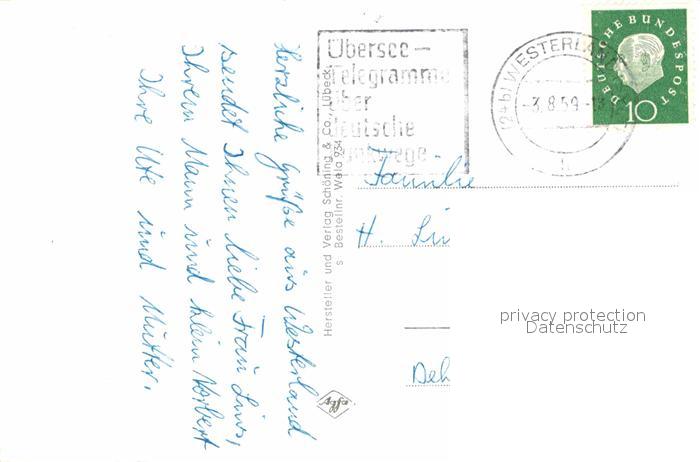 Herzliche Grüße aus Westerland
sendet Ihnen liebe Frau Lins,
Ihrem Mann und klein Norbert
Ihre Ute und Mutter.
Hersteller und Verlag Schöning & Co., Lübeck
s Bestellnr. Wela 934
Agfa
Übersee-
Telegramme
über
deutsche
Funkwege
(24b) WESTERLAND
-3.8.59
DEUTSCHE BUNDESPOST
10
Familie
H. Lin
Deh
privacy protection
Datenschutz